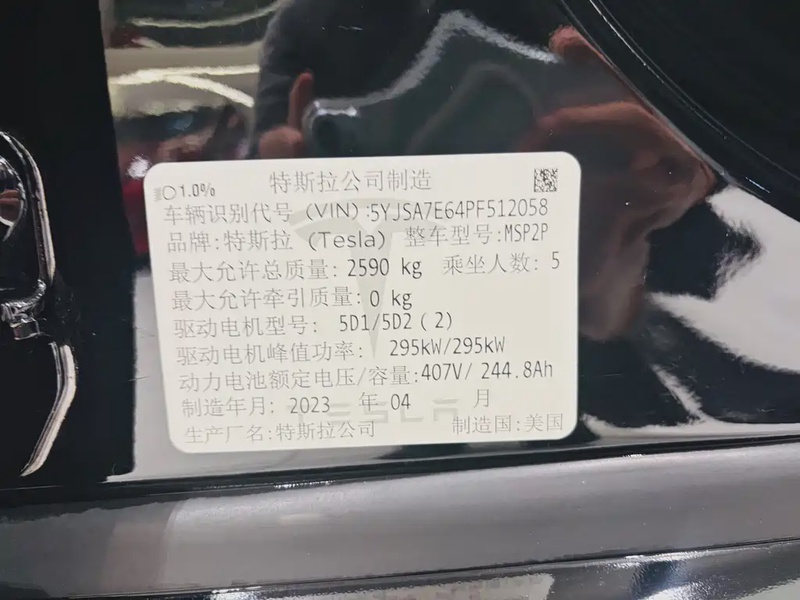 1.0%
特斯拉公司制造
车辆识别代号 (VIN):5YJSA7E64PF512058
品牌:特斯拉 (Tesla) 整车型号:MSP2P
最大允许总质量: 2590 kg 乘坐人数: 5
最大允许牵引质量: 0 kg
驱动电机型号: 5D1/5D2 (2)
驱动电机峰值功率: 295kW/295kW
动力电池额定电压/容量:407V/ 244.8Ah
制造年月: 2023 年 04 月
TESLA
生产厂名:特斯拉公司 制造国:美国